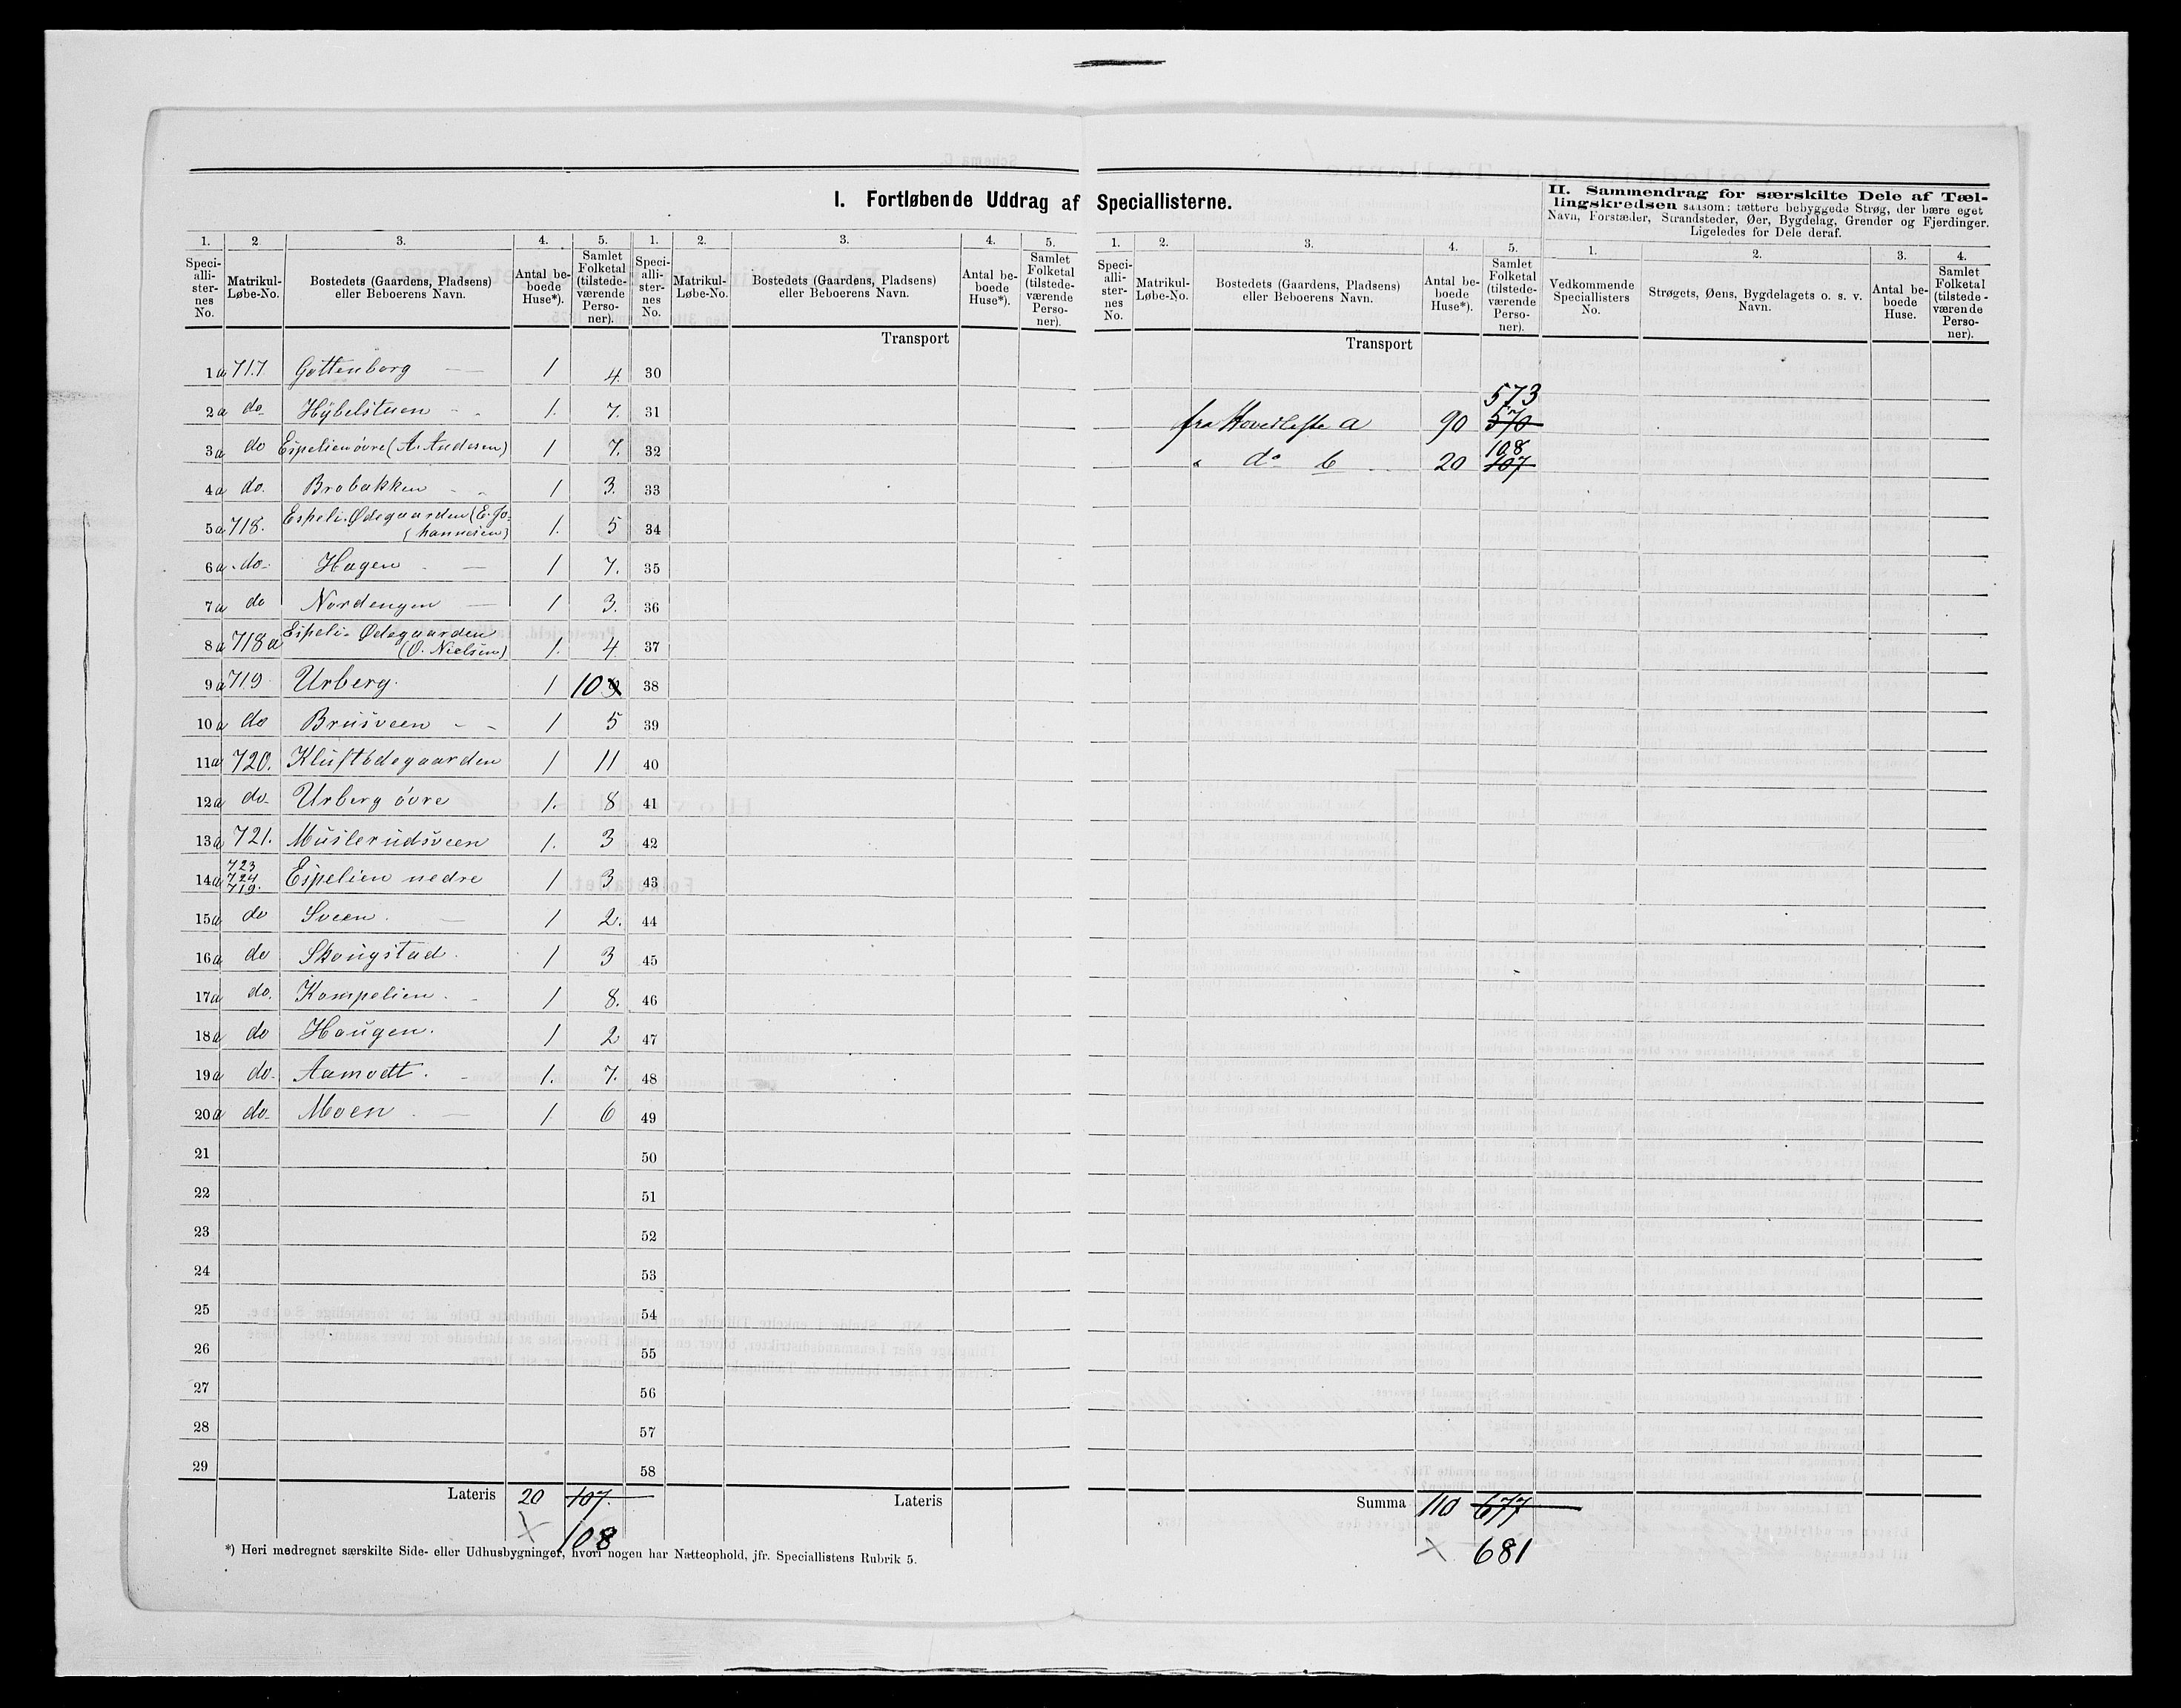 I. Fortløbende Uddrag af Speciallisterne.
II. Sammendrag for særskilte Dele af Tæl-
lingskredsen saasom: tættere bebyggede Strøg, der bære eget
Navn, Forstæder, Strandsteder, Øer, Bygdelag, Grender og Fjerdinger.
Ligeledes for Dele deraf.
1. 2 3. 4. 5. 1. 2. 3. 4. 5. 1. 2. 3. 4. 5. 1. 2. 3. 4.
Speci-
alli-
ster-
nes
No.
Matrikul-
Løbe-No.
Bostedets (Gaardens, Pladsens)
eller Beboerens Navn.
Antal be-
boede
Huse*).
Samlet
Folketal
(tilstede-
værende
Perso-
ner).
Speci-
alli-
ster-
nes
No.
Matrikul-
Løbe-No.
Bostedets (Gaardens, Pladsens)
eller Beboerens Navn.
Antal be-
boede
Huse*).
Samlet
Folketal
(tilstede-
værende
Perso-
ner).
Speci-
alli-
ster-
nes
No.
Matrikul-
Løbe-No.
Bostedets (Gaardens, Pladsens)
eller Beboerens Navn.
Antal be-
boede
Huse*).
Samlet
Folketal
(tilstede-
værende
Perso-
ner).
Vedkommende
Speciallisters
No.
Strøgets, Øens, Bygdelagets o. s. v.
Navn.
Antal be-
boede
Huse.
Samlet
Folketal
(tilstede-
værende
Perso-
ner).
Transport
Transport
1a 717 Gottenborg 1 4. 30
2a do Hybelstuen 1. 7. 31
3a do Espelien övre (A. Andersen) 1 7. 32
4a do. Brobakken 1 3. 33
5a 718. Espeli-Ødegaarden (E. Jo-
hannesen) 1. 5 34
6a do Hagen 1 7. 35
7a do Nordengen 1 3. 36
8a 718a Espeli-Ødegaarden
(O. Nielsen) 1. 4. 37
9a 719 Urberg. 1 10 9 38
10a do Brusveen 1 5 39
11a 720. Kluftödegaarden 1 11 40
12a do Urberg övre 1. 8 41
13a 721. Muslerudsveen 1. 3 42
14a 723
724
719. Espelien nedre 1 3 43
15a do Sveen. 1 2. 44
16a do Skougstad. 1 3 45
17a do. Kompelien. 1 8. 46
18a do Haugen. 1 2 47
19a do Aamodt. 1. 7. 48
20a do Moen. 1 6 49
21 50
22 51
23 52
24 53
25 54
26 55
27 56
28 57
29 58
Lateris 20 107.
108
Lateris
573
fra Hovedliste a 90 570
108
" do b 20 107
Summa 110 677
681
*) Heri medregnet særskilte Side- eller Udhusbygninger, hvori nogen har Natteophold, jfr. Speciallistens Rubrik 5.